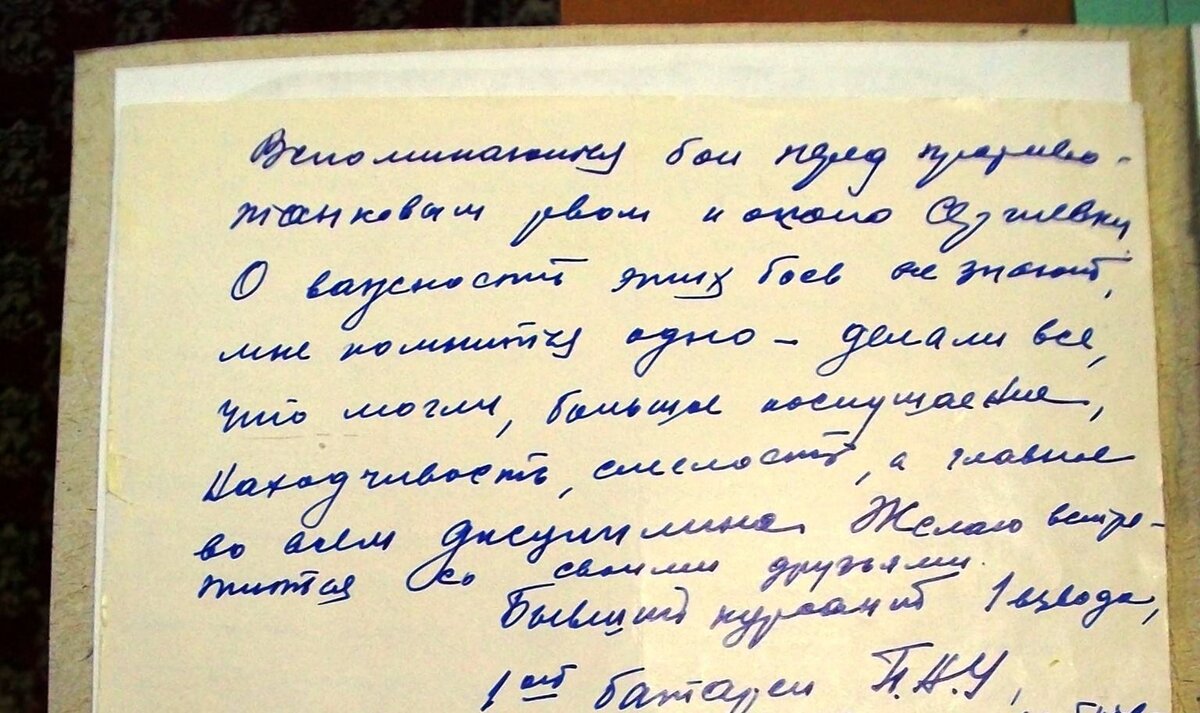 Вспоминаются бои перед противо-
танковым рвом и около Сергиевки
О важности этих боев не знают,
мне помнится одно – делали все,
что могли, больше послушание,
находчивость, смелость, а главное
во всем дисциплина. Желаю встре-
титься со своими друзьями.
Бывший курсант 1 взвода,
1ой батареи П.А.У,